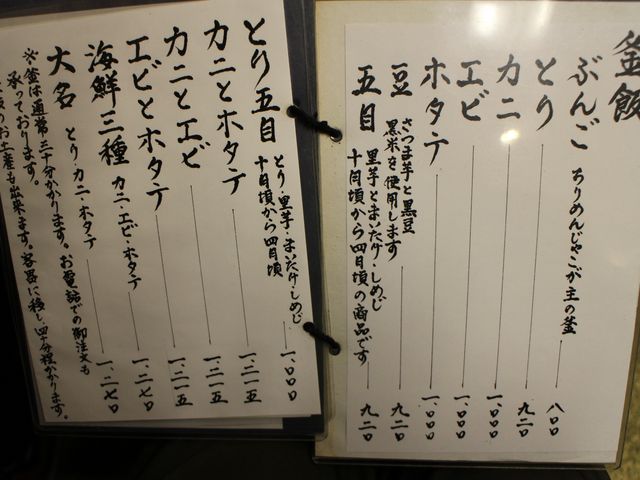 釜飯
ぶんご ちりめんじゃこが主の釜 八〇〇
とり 九二〇
カニ 一、〇〇〇
エビ 一、〇〇〇
ホタテ 一、〇〇〇
豆 さつま芋と黒豆
黒米を使用します 九二〇
五目 里芋とまいたけ・しめじ
十月頃から四月頃の商品です 九二〇
とり五目 とり・里芋・まいたけ・しめじ
十月頃から四月頃 一、〇〇〇
カニとホタテ 一、二一五
カニとエビ 一、二一五
エビとホタテ 一、二一五
海鮮三種 カニ・エビ・ホタテ 一、二七〇
大名 とり・カニ・ホタテ 一、二七〇
※釜は通常三十分かかります。お電話での御注文も
承っております。
のお土産も出来ます。容器に移し、四十分程かかります。